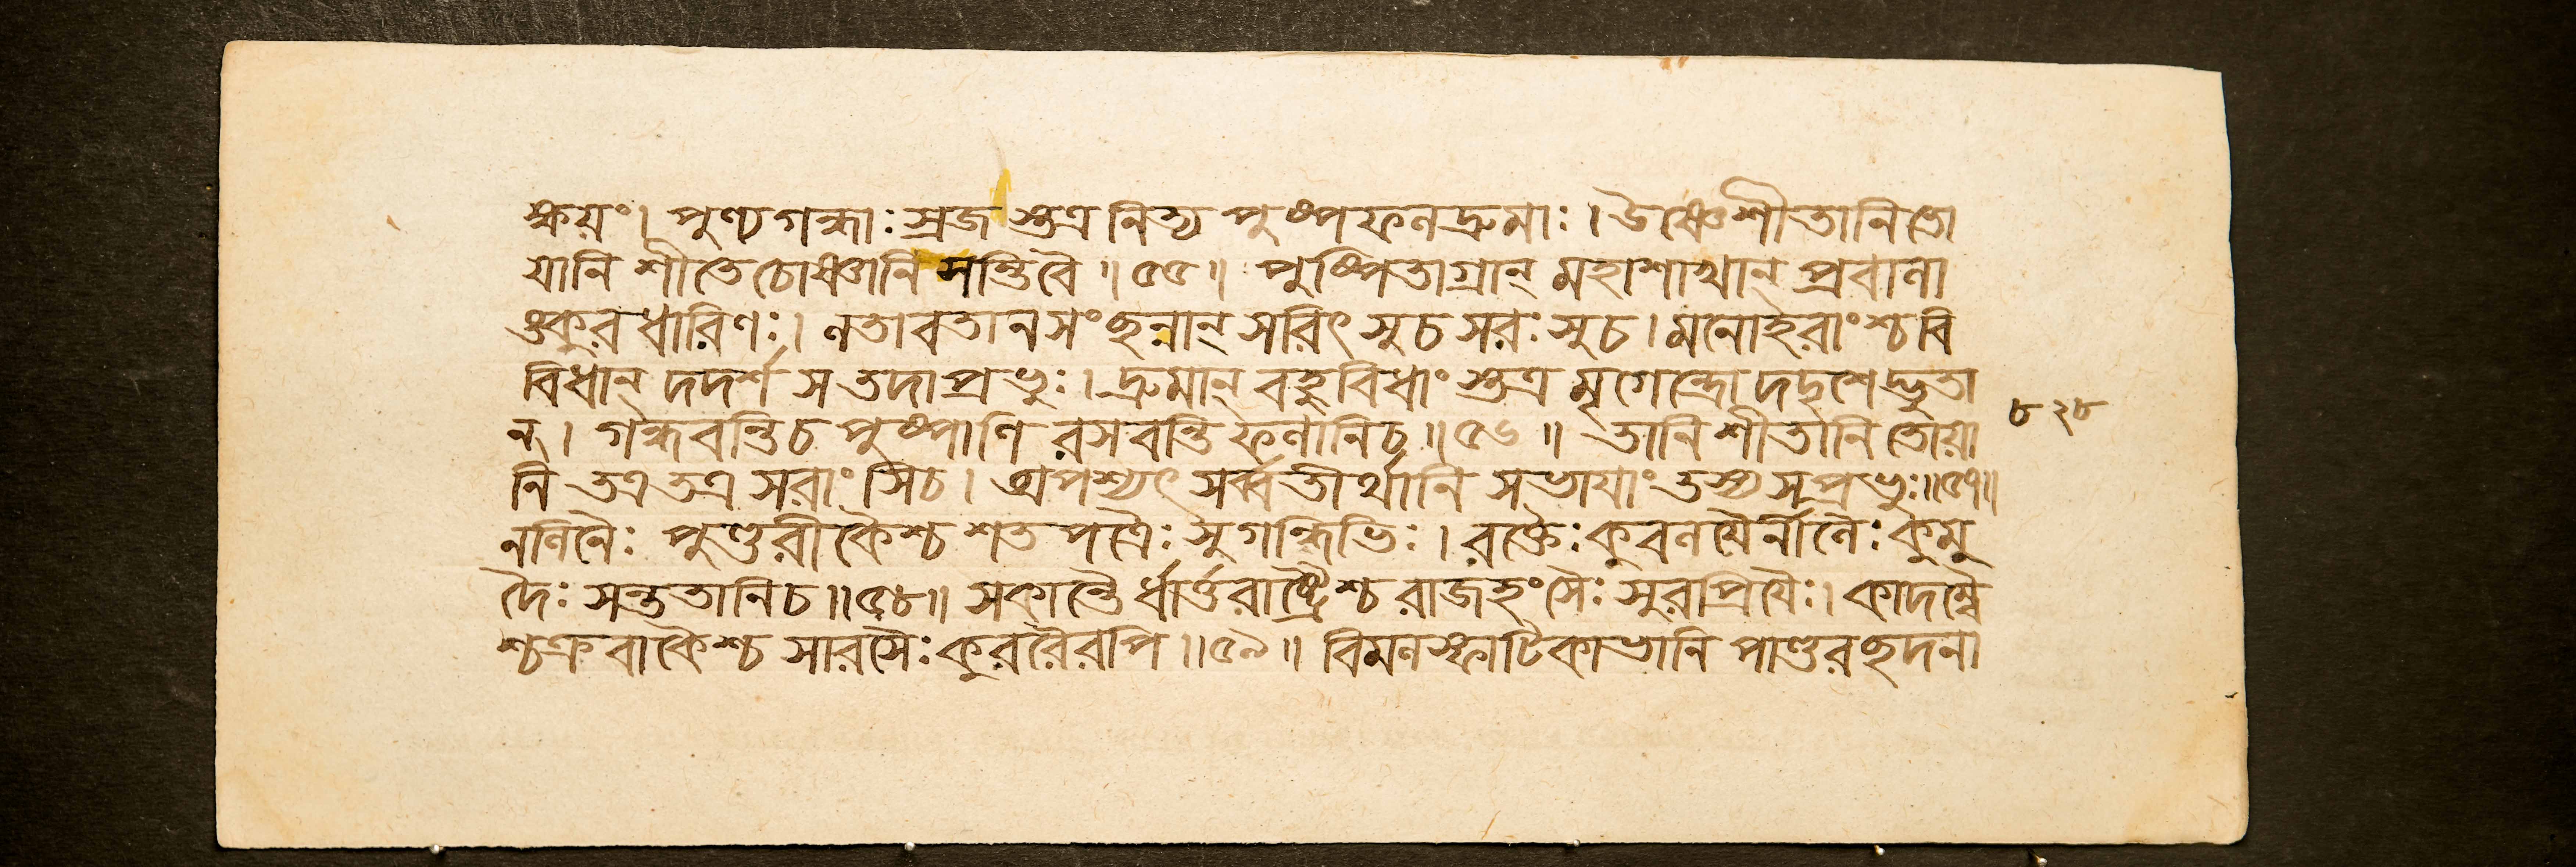 ক্ষয়ং। পুণ্যগন্ধাঃ স্রজ স্তত্র নিত্য পুষ্পফলদ্রুমাঃ। উষ্ণেশীতানিতো
যানি শীতেচোষ্ণানি সন্তিবৈ॥৫৫॥ পুষ্পিতাগ্রান্ মহাশাখান্ প্রবালা
ঙ্কুরধারিণঃ। লতাবতানসংছন্নান্ সরিৎ সুচ সরঃ সুচ। মনোহরাংশ্চবি
বিধান্ দদর্শ সতদাপ্রভুঃ। দ্রুমান্ বহুবিধাং স্তত্র মৃগেন্দ্রোদদৃশেদ্ভুতা
ন্। গন্ধবন্তিচ পুষ্পাণি রসবন্তিফলানিচ॥৫৬॥ তানিশীতানিতোয়া
৮২৮
নি তত্রতত্র সরাংসিচ। অপশ্যৎ সর্ব্বতীর্থানি সভাযাংতস্যসপ্রভুঃ॥৫৭॥
নলিনৈঃ পুণ্ডরীকৈশ্চ শতপত্রৈঃ সুগন্ধিভিঃ। রক্তৈঃ কুবলযৈর্নীলৈঃ কুমু
দৈঃ সন্ততানিচ॥৫৮॥ সকান্তৈর্ধার্ত্তরাষ্ট্রৈশ্চ রাজহংসৈঃ সুরপ্রিযৈঃ। কাদম্বৈ
শ্চক্রবাকৈশ্চ সারসৈঃ কুররৈরপি॥৫৯॥ বিমলস্ফাটিকাভানি পাণ্ডরছদনা